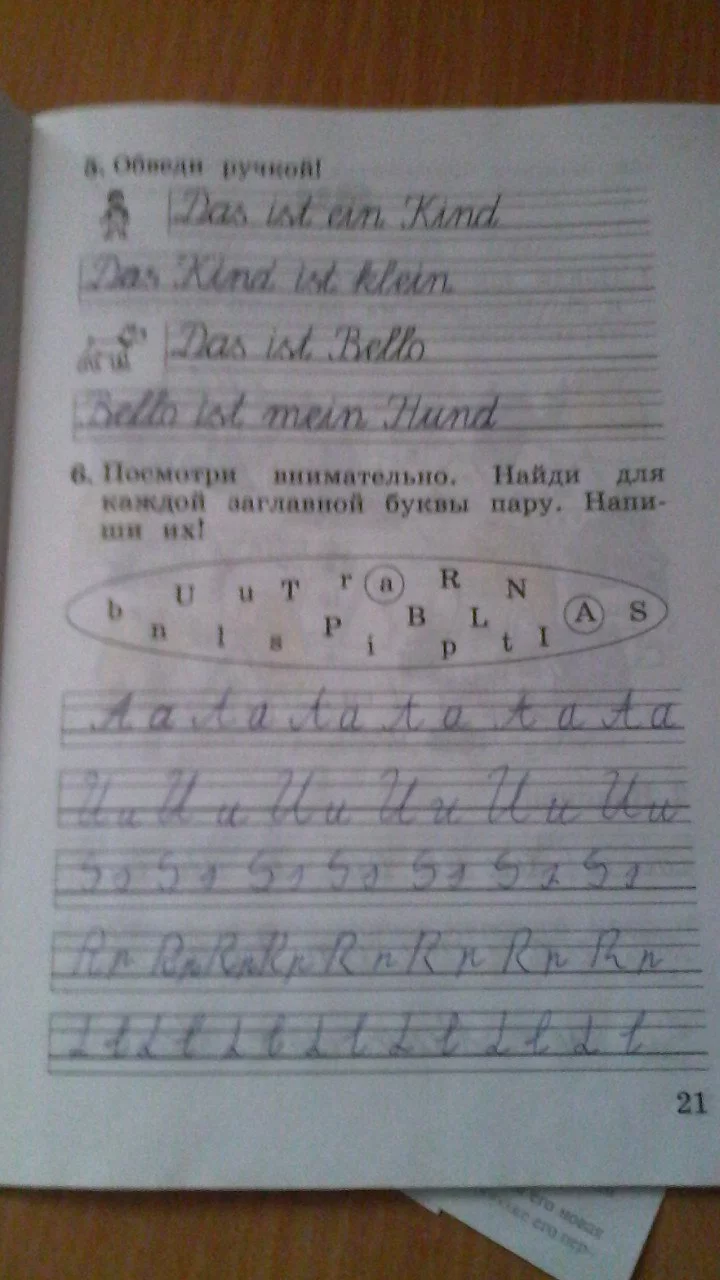 5. Обведи ручкой!
Das ist ein Kind
Das Kind ist klein
Das ist Bello
Bello ist mein Hund
6. Посмотри внимательно. Найди для
каждой заглавной буквы пару. Напи-
ши их!
b U u T r a R N
n l s P i B L p t I A S
A a A a A a A a A a A a
U u U u U u U u U u U u
S s S s S s S s S s S s S s
R r R r R r R r R r R r R r R r
L l L l L l L l L l L l L l
21
его новая